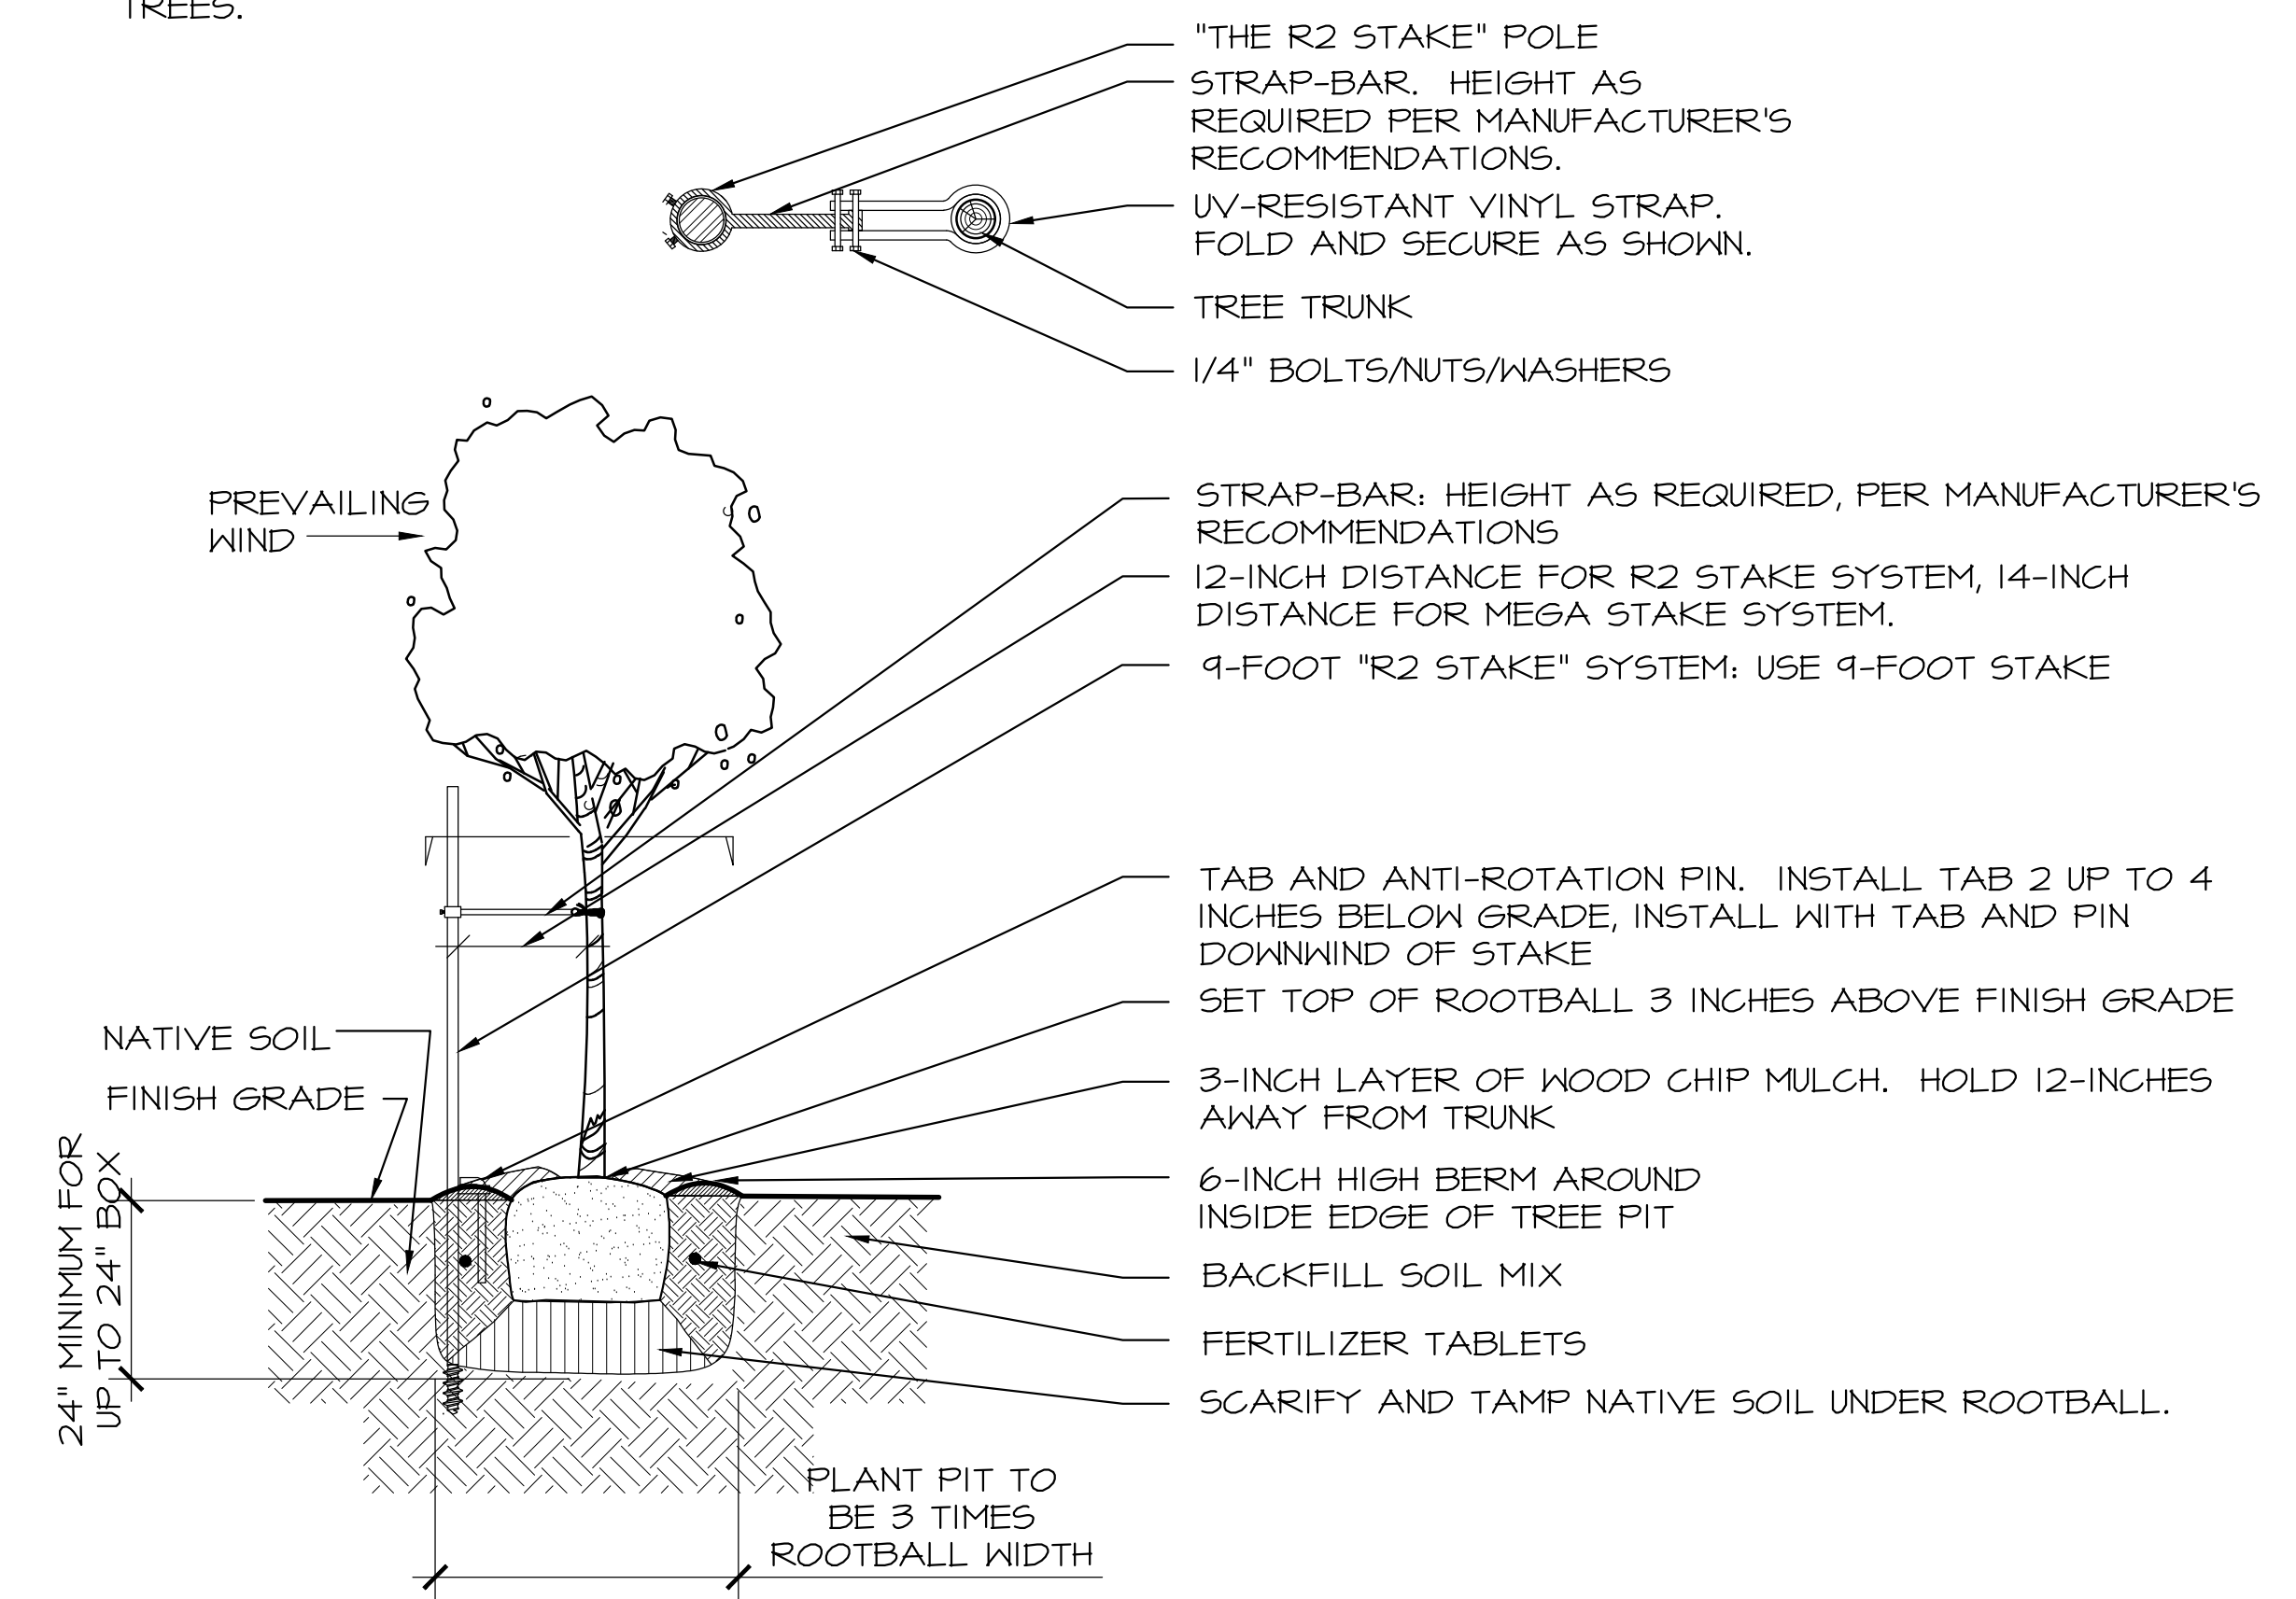 TREES.
"THE R2 STAKE" POLE
STRAP-BAR. HEIGHT AS
REQUIRED PER MANUFACTURER'S
RECOMMENDATIONS.
UV-RESISTANT VINYL STRAP.
FOLD AND SECURE AS SHOWN.
TREE TRUNK
1/4" BOLTS/NUTS/WASHERS
PREVAILING
WIND
STRAP-BAR: HEIGHT AS REQUIRED, PER MANUFACTURER'S
RECOMMENDATIONS
12-INCH DISTANCE FOR R2 STAKE SYSTEM, 14-INCH
DISTANCE FOR MEGA STAKE SYSTEM.
9-FOOT "R2 STAKE" SYSTEM: USE 9-FOOT STAKE
TAB AND ANTI-ROTATION PIN. INSTALL TAB 2 UP TO 4
INCHES BELOW GRADE, INSTALL WITH TAB AND PIN
DOWNWIND OF STAKE
SET TOP OF ROOTBALL 3 INCHES ABOVE FINISH GRADE
NATIVE SOIL
FINISH GRADE
3-INCH LAYER OF WOOD CHIP MULCH. HOLD 12-INCHES
AWAY FROM TRUNK
6-INCH HIGH BERM AROUND
INSIDE EDGE OF TREE PIT
BACKFILL SOIL MIX
FERTILIZER TABLETS
SCARIFY AND TAMP NATIVE SOIL UNDER ROOTBALL.
24" MINIMUM FOR
UP TO 24" BOX
PLANT PIT TO
BE 3 TIMES
ROOTBALL WIDTH